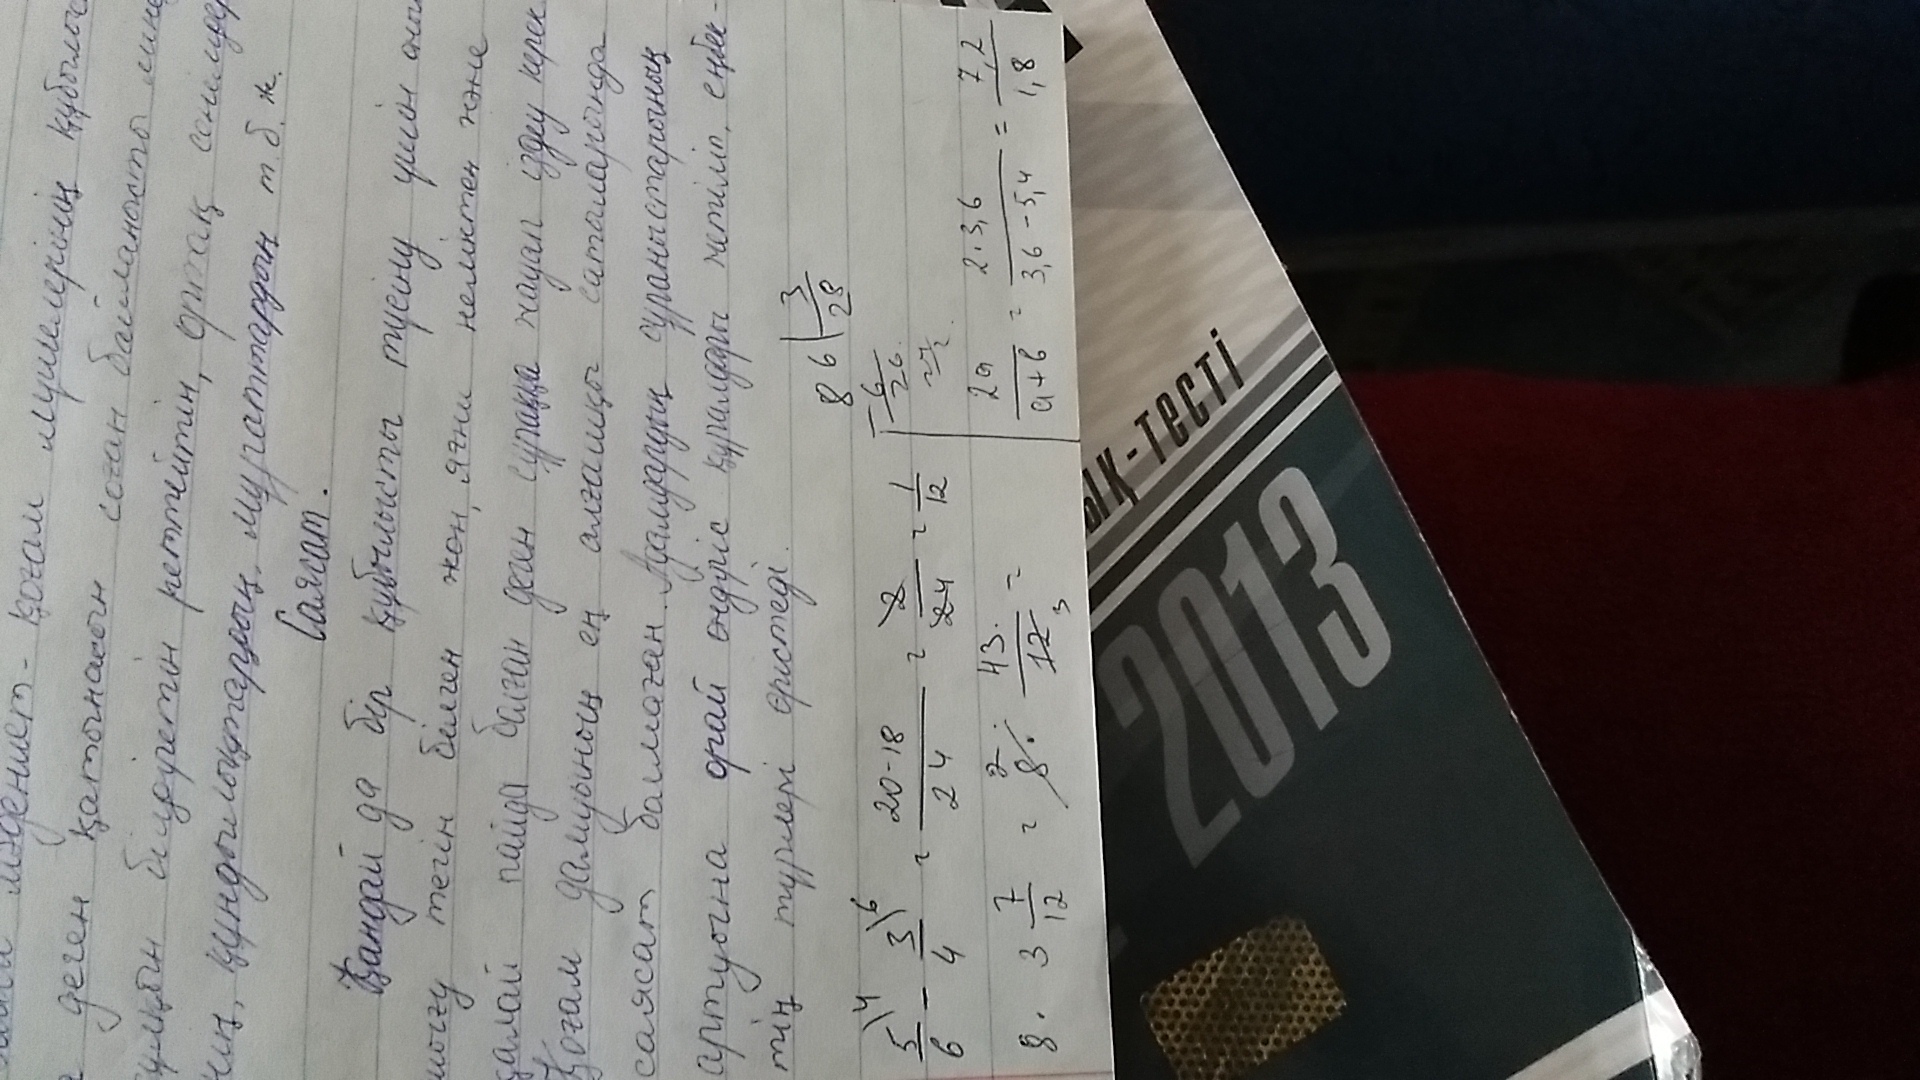 мәдениет - қоғам мүшелерінің құбылыс
деген қатынасын соған байланысты
білдіретін реттейтін, ортақ сенімдер
құндылықтардың, мұраттардың т.б. ж.
Саясат.
Қандай да бір құбылысты түсіну үшін оның
тегін білген жөн, яғни неліктен және
қалай пайда болған деген сұраққа жауап іздеу керек
Қоғам дамуының ең алғашқы сатыларында
саясат болмаған. Адамдардың сұраныстарының
артуына орай өндіріс құралдары жетіліп, еңбек-
тің түрлері өрістеді.
86 | 3
6 28
26
5\4/6 - 3\6/4 = 20-18/24 = 2/24 = 1/12
8 · 3 7/12 = 8 · 43/12 =
2a/a+b = 2·3,6/3,6-5,4 = 7,2/1,8
ЫҚ-ТЕСТІ
2013